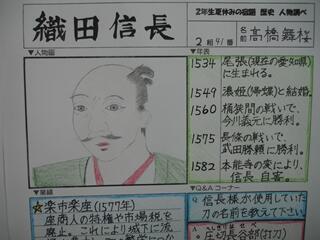 織田信長
2年生夏休みの宿題 歴史 人物調べ
2組41番
氏名 高橋舞桜
▼人物画
▼年表
1534 尾張(現在の愛知県)
に生まれる。
1549 濃姫(帰蝶)と結婚。
1560 桶狭間の戦いで、
今川義元に勝利。
1575 長篠の戦いで、
武田勝頼に勝利。
1582 本能寺の変により、
信長 自害。
▼業績
☆楽市楽座(1577年)
座商人の特権や市場税を
廃止。これにより城下に流
▼Q&Aコーナー
Q 信長様が使用していた
刀の名前を教えて下さい
A 圧切長谷部(打刀)